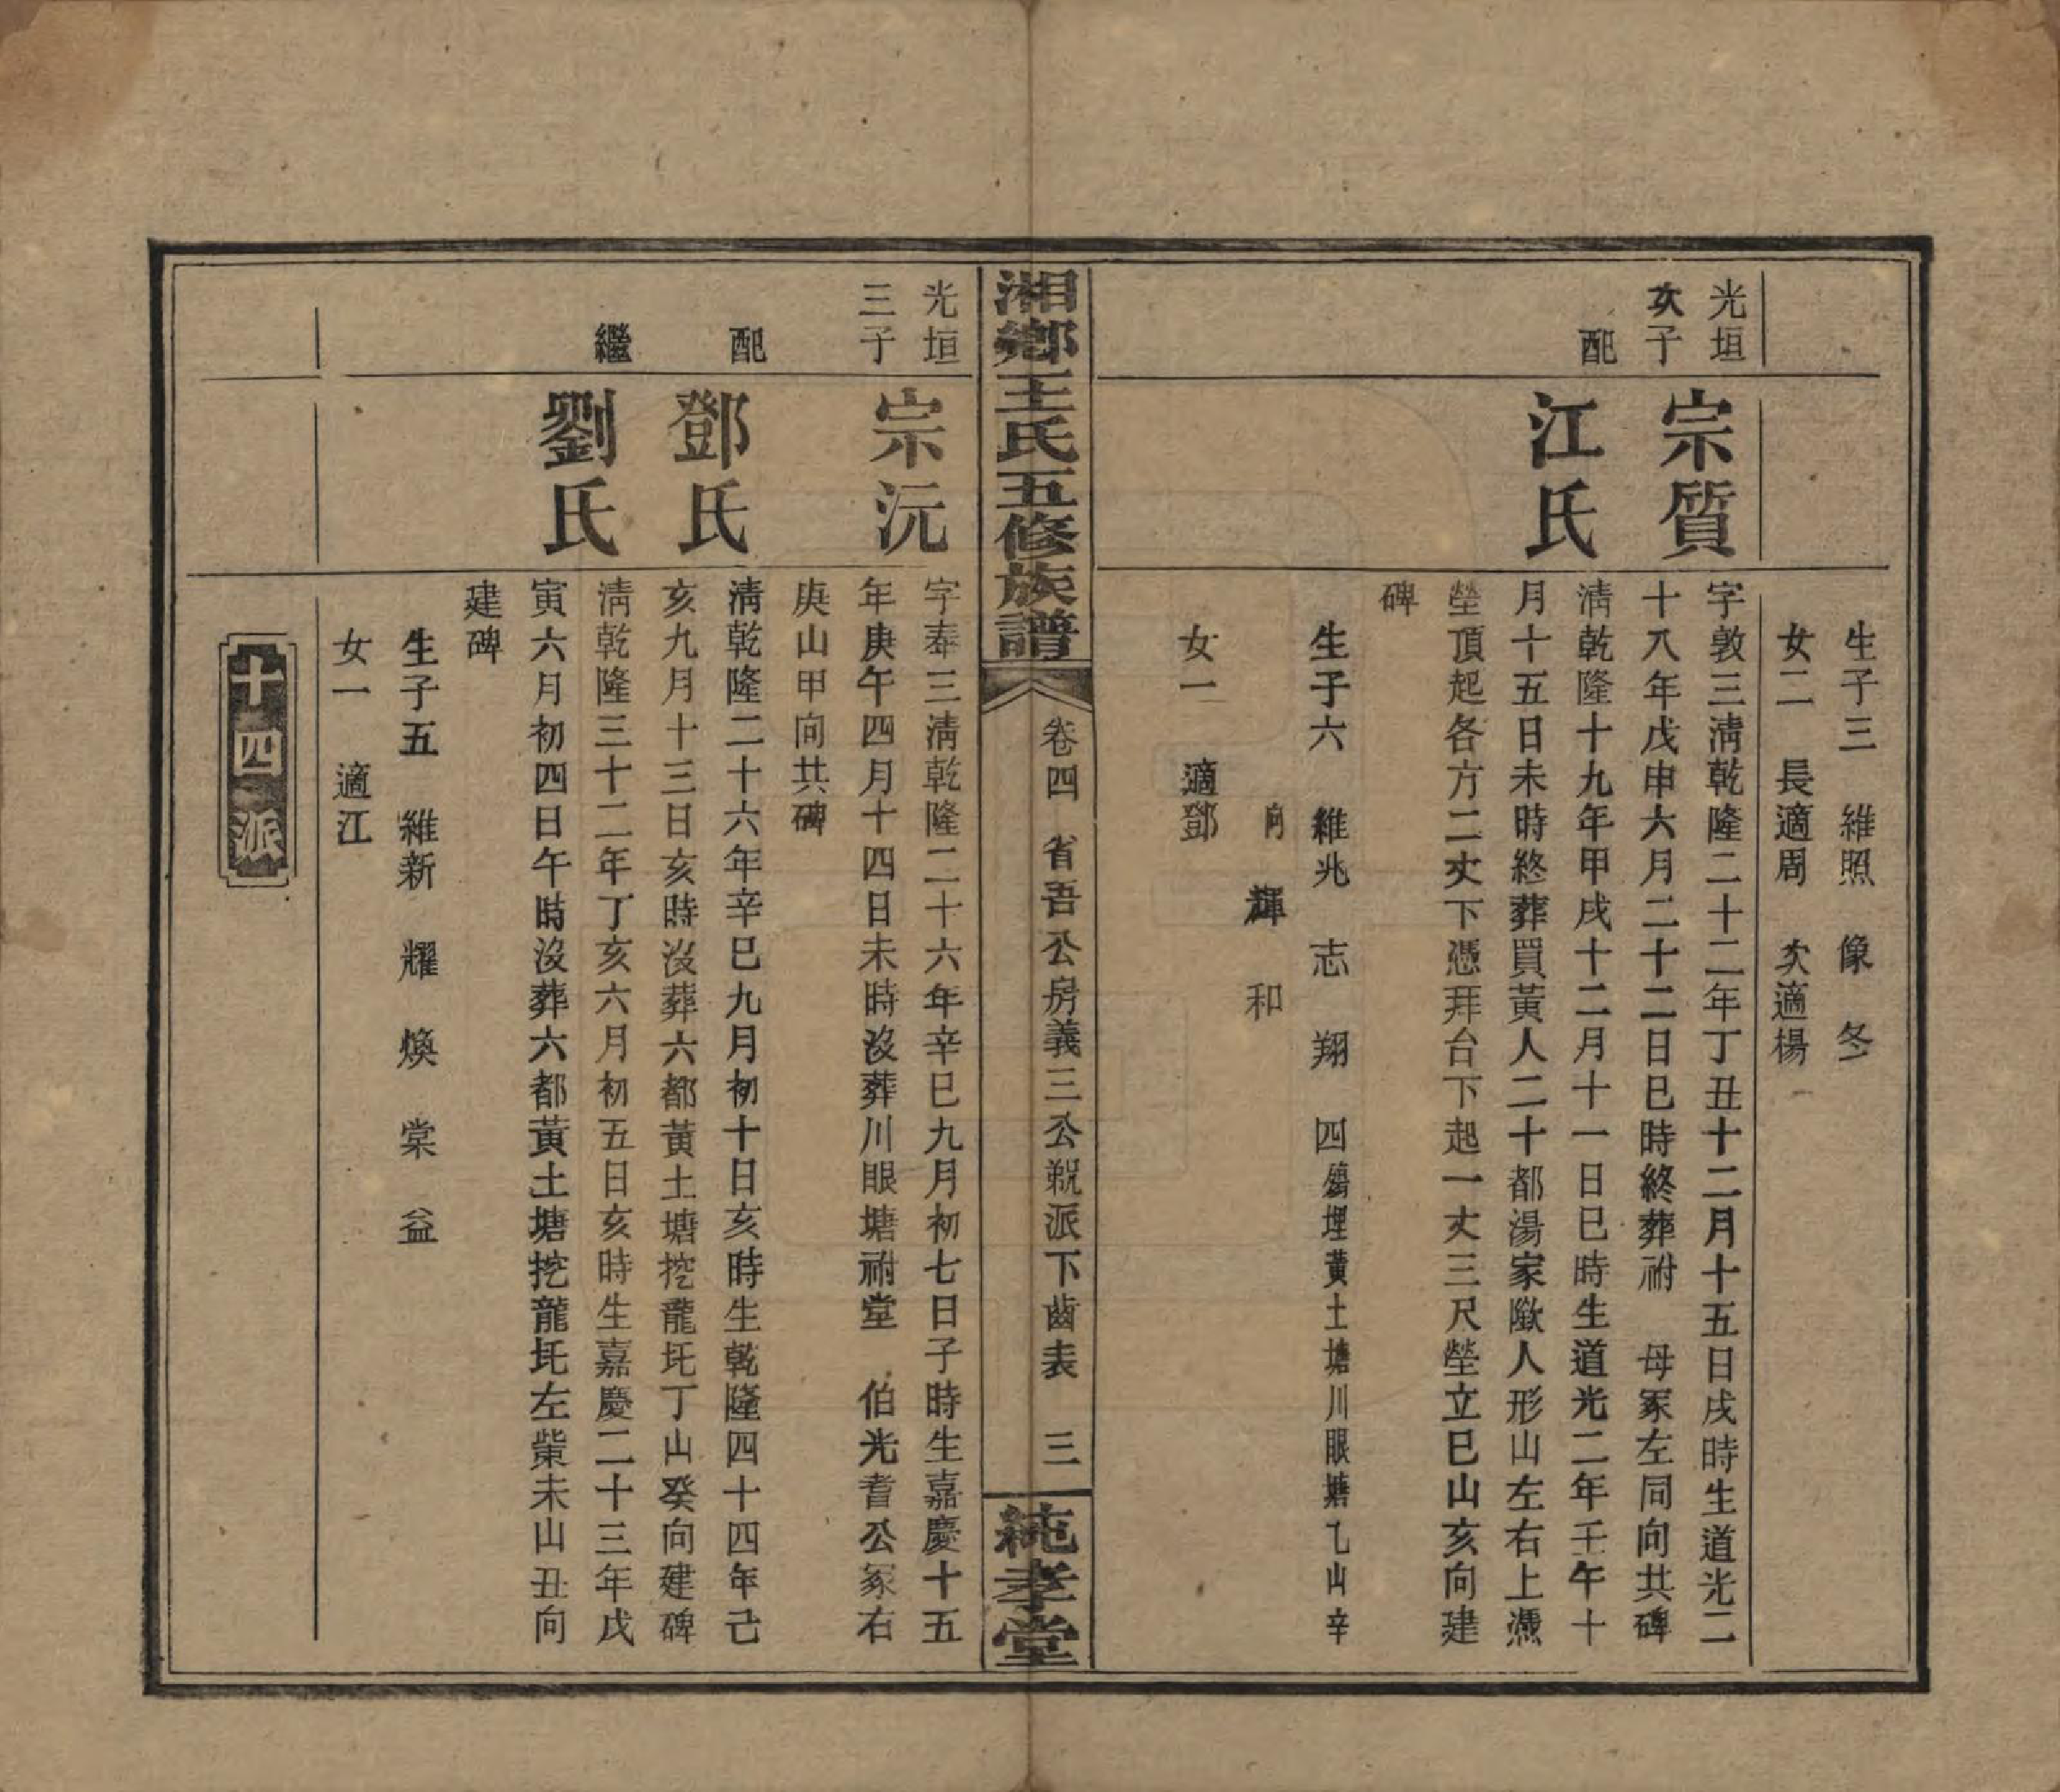 生子三　維照　像　冬
女二　長適周　次適楊
光垣
次子
宗質
字敦三清乾隆二十二年丁丑十二月十五日戌時生道光二
十八年戊申六月二十二日巳時終葬祔　母冢左同向共碑
配
江氏
清乾隆十九年甲戌十二月十一日巳時生道光二年壬午十
月十五日未時終葬買黃人二十都湯家隞人形山左右上憑
塋頂起各方二丈下憑拜台下起一丈三尺塋立巳山亥向建
碑
生子六　維兆　志　翔　四殤埋黃土塘川眼塘乀山辛
向　輝　和
女一　適鄧
湘鄉王氏五修族譜
卷四　省吾公房義三公派下齒表　三
純孝堂
光垣
三子
宗沅
字奉三清乾隆二十六年辛巳九月初七日子時生嘉慶十五
年庚午四月十四日未時沒葬川眼塘祔堂　伯光耆公冢右
庚山甲向共碑
配
鄧氏
清乾隆二十六年辛巳九月初十日亥時生乾隆四十四年己
亥九月十三日亥時沒葬六都黃土塘挖龍圫丁山癸向建碑
繼
劉氏
清乾隆三十二年丁亥六月初五日亥時生嘉慶二十三年戊
寅六月初四日午時沒葬六都黃土塘挖龍圫左㭰未山丑向
建碑
生子五　維新　耀　煥　棠　益
女一　適江
十四派